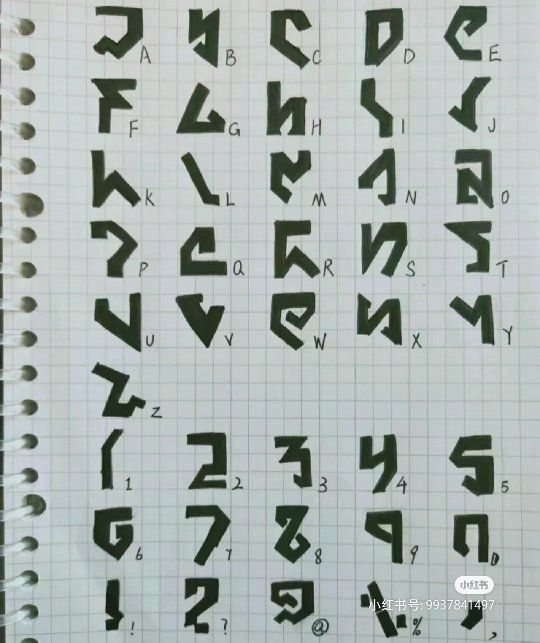 A B C D E
F G H I J
K L M N O
P Q R S T
U V W X Y
Z
1 2 3 4 5
6 7 8 9 0
! ? @ % ,
小红书
小红书号: 9937841497